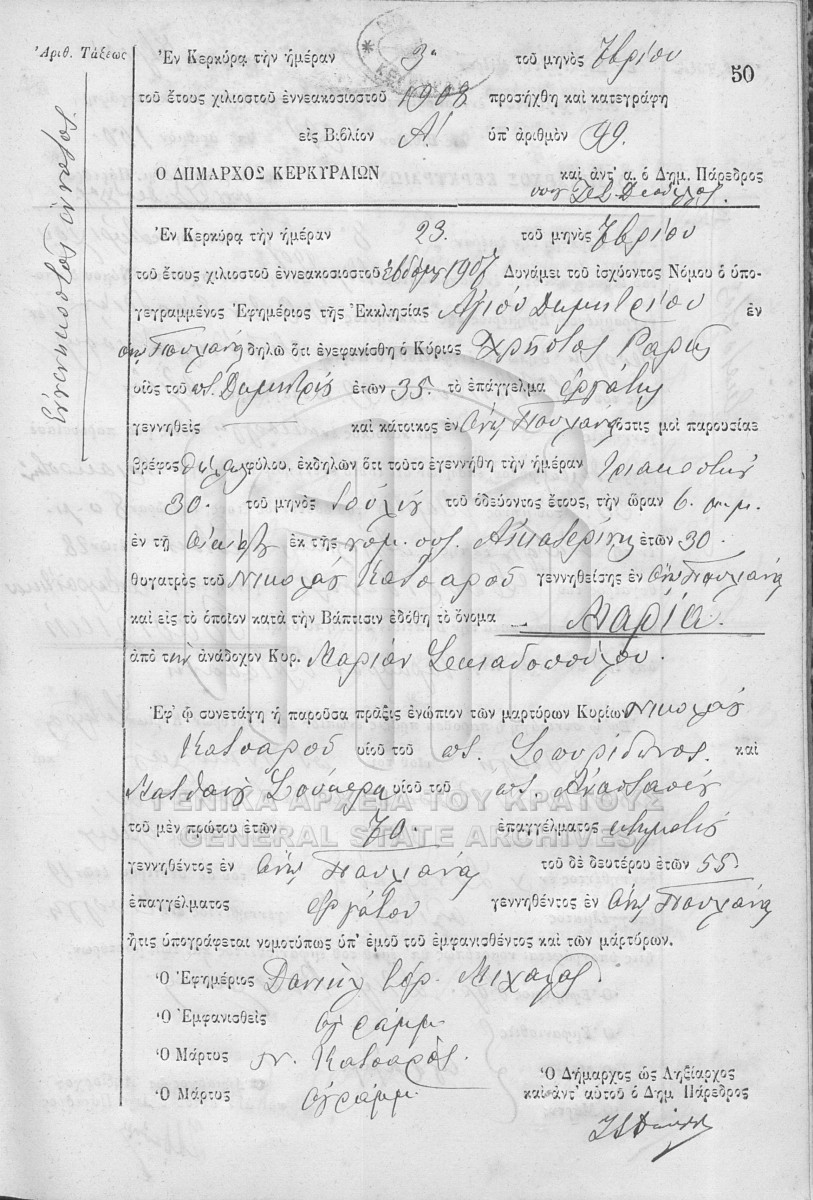 Ἀριθ. Τάξεως
Ἐν Κερκύρᾳ τὴν ἡμέραν 3η τοῦ μηνὸς
50
τοῦ ἔτους χιλιοστοῦ ἐννεακοσιοστοῦ 1908 προσήχθη καὶ κατεγράφη
εἰς Βιβλίον Α! ὑπ' ἀριθμὸν 49.
Ο ΔΗΜΑΡΧΟΣ ΚΕΡΚΥΡΑΙΩΝ καὶ ἀντ' α. ὁ Δημ. Πάρεδρος
Ἐννενηκοστὸς ἔννατος
Ἐν Κερκύρᾳ τὴν ἡμέραν 23. τοῦ μηνὸς
τοῦ ἔτους χιλιοστοῦ ἐννεακοσιοστοῦ ἑβδόμου 1907 Δυνάμει τοῦ ἰσχύοντος Νόμου ὁ ὑπο-
γεγραμμένος Ἐφημέριος τῆς Ἐκκλησίας Ἁγίου Δημητρίου ἐν
δηλῶ ὅτι ἐνεφανίσθη ὁ Κύριος Χρῆστος
υἱὸς τοῦ ποτ. Δημητρίου ἐτῶν 35. τὸ ἐπάγγελμα ἐργάτης
γεννηθεὶς καὶ κάτοικος ἐν ὅστις μοὶ παρουσίασε
βρέφος θήλεος φύλου, ἐκδηλῶν ὅτι τοῦτο ἐγεννήθη τὴν ἡμέραν τριακοστὴν
30. τοῦ μηνὸς Ἰουλίου τοῦ ὁδεύοντος ἔτους, τὴν ὥραν 6. π.μ.
ἐν τῇ οἰκίᾳ ἐκ τῆς νομ. συζ. Αἰκατερίνης ἐτῶν 30.
θυγατρὸς τοῦ Νικολάου Κατσαροῦ γεννηθείσης ἐν
καὶ εἰς τὸ ὁποῖον κατὰ τὴν Βάπτισιν ἐδόθη τὸ ὄνομα Μαρία.
ἀπὸ τὴν ἀνάδοχον Κυρ. Μαρίαν Σκιαδοπούλου.
Ἐφ' ᾧ συνετάγη ἡ παροῦσα πρᾶξις ἐνώπιον τῶν μαρτύρων Κυρίων Νικολάου
Κατσαροῦ υἱοῦ τοῦ ποτ. Σπυρίδωνος. καὶ
Ματθαίου υἱοῦ τοῦ ποτ. Ἀναστασίου
ΓΕΝΙΚΑ ΑΡΧΕΙΑ ΤΟΥ ΚΡΑΤΟΥΣ
τοῦ μὲν πρώτου ἐτῶν 70. ἐπαγγέλματος κτηματίου
GENERAL STATE ARCHIVES
γεννηθέντος ἐν τοῦ δὲ δευτέρου ἐτῶν 55.
ἐπαγγέλματος ἐργάτου γεννηθέντος ἐν
ἥτις ὑπογράφεται νομοτύπως ὑπ' ἐμοῦ τοῦ ἐμφανισθέντος καὶ τῶν μάρτύρων.
Ὁ Ἐφημέριος Δανιὴλ ἱερ.
Ὁ Ἐμφανισθεὶς ἀγράμμ.
Ὁ Μάρτυς Ν. Κατσαρὸς.
Ὁ Μάρτυς ἀγράμμ.
Ὁ Δήμαρχος ὡς Ληξίαρχος
καὶ ἀντ' αὐτοῦ ὁ Δημ Πάρεδρος